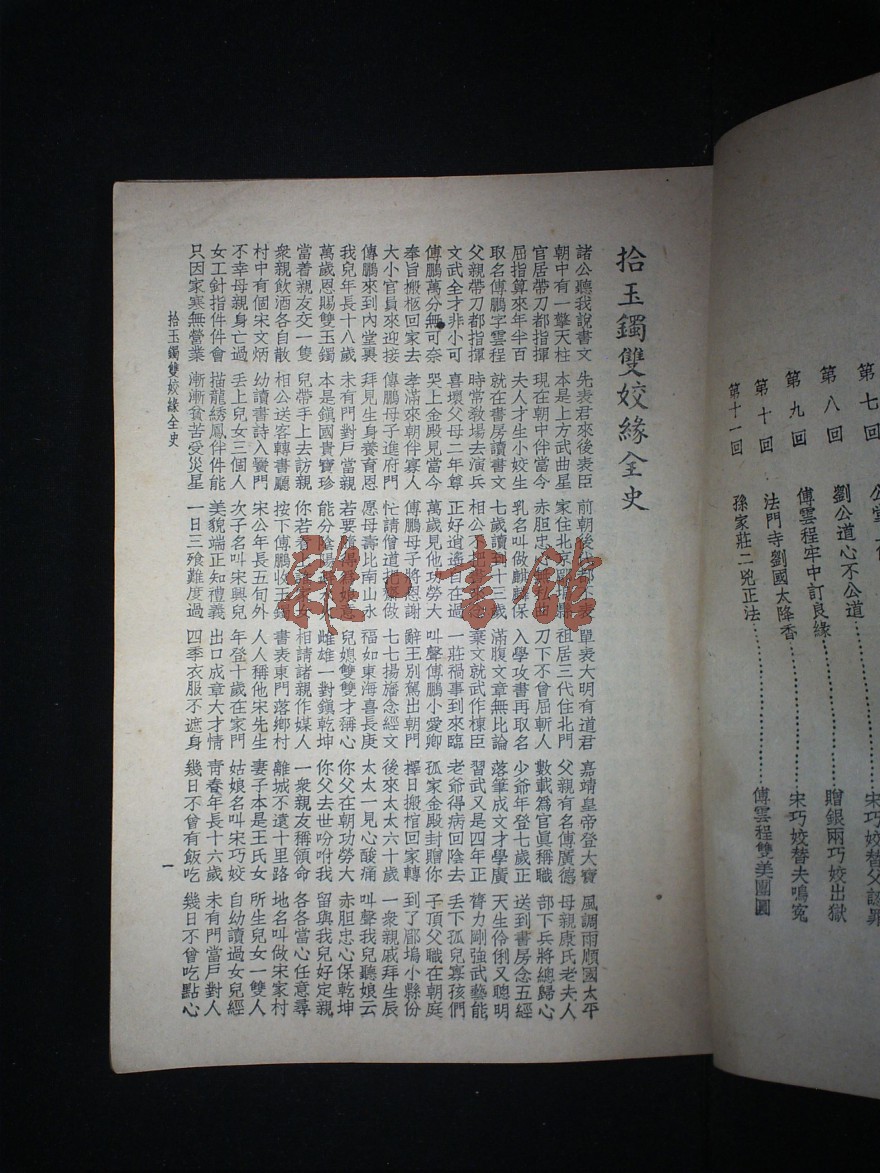 第七回 公堂上
宋巧姣替父認罪
第八回 劉公道心不公道……贈銀兩巧姣出獄
第九回 傅雲程牢中訂良緣……宋巧姣替夫鳴冤
第十回 法門寺劉國太降香
第十一回 孫家莊二兇正法……傅雲程雙美團圓
拾玉鐲雙姣緣全史
諸公聽我說書文 先表君來後表臣 前朝後 都不表 單表大明有道君 嘉靖皇帝登大寶 風調雨順國太平
朝中有一擎天柱 本是上方武曲星 家住北京 祖居三代住北門 父親有名傅廣德 母親康氏老夫人
官居帶刀都指揮 現在朝中伴當今 赤胆忠 刀下不曾屈斬人 數載爲官眞稱職 部下兵將總歸心
屈指算來年半百 夫人才生小姣生 乳名叫做麒麟保 入學攻書再取名 少爺年登七歲正 送到書房念五經
取名傅鵬字雲程 就在書房讀書文 七歲讀到十三歲 滿腹文章無比論 落筆成文才學廣 天生伶俐又聰明
父親帶刀都指揮 時常敎場去演兵 相公不把 棄文就武作棟臣 習武又是四年正 膂力剛強武藝能
文武全才非小可 喜壞父母二年尊 正好逍遙自在過 一莊禍事到來臨 老爺得病回陰去 丢下孤兒寡孩們
傅鵬萬分無可奈 哭上金殿見當今 萬歲見他功勞大 叫聲傅鵬小愛卿 孤家金殿封贈你 子頂父職在朝庭
奉旨搬柩回家去 孝滿來朝伴寡人 傅鵬母子將恩謝 辭王別駕出朝門 擇日搬棺回家轉 到了郿塢小縣份
大小官員來迎接 傅鵬母子進府門 忙請僧道把齋做 七七揚旛念經文 後來太太六十歲 一衆親戚拜生辰
傅鵬來到內堂輿 拜見生身養育恩 愿母壽比南山永 福如東海喜長庚 太太一見心酸痛 叫聲我兒聽娘云
我兒年長十八歲 未有門對戶當親 若要 兒媳雙雙才稱心 你父在朝功勞大 赤胆忠心保乾坤
萬歲恩賜雙玉鐲 本是鎭國貴寶珍 能分陰陽 雌雄一對鎭乾坤 你父去世吩咐我 留與我兒好定親
當着親友交一隻 兒帶手上去訪親 你若 相請諸親作媒人 一衆親友稱領命 各各當心任意尋
衆親飲酒各自散 相公送客轉書廳 按下傅鵬收玉鐲 書表東門落鄉村 離城不遠十里路 地名叫做宋家村
村中有個宋文炳 幼讀書詩入黌門 宋公年長五旬外 人人稱他宋先生 妻子本是王氏女 所生兒女一雙人
不幸母親身亡過 丢上兒女三個人 次子名叫宋興兒 年登十歲在家門 姑娘名叫宋巧姣 自幼讀過女兒經
女工針指件件會 描龍綉鳳件件能 美貌端正知禮義 出口成章大才情 靑春年長十六歲 未有門當戶對人
只因家寒無營業 漸漸貧苦受災星 一日三飱難度過 四季衣服不遮身 幾日不曾有飯吃 幾日不曾吃點心
拾玉鐲雙姣緣全史 一
雜·書館